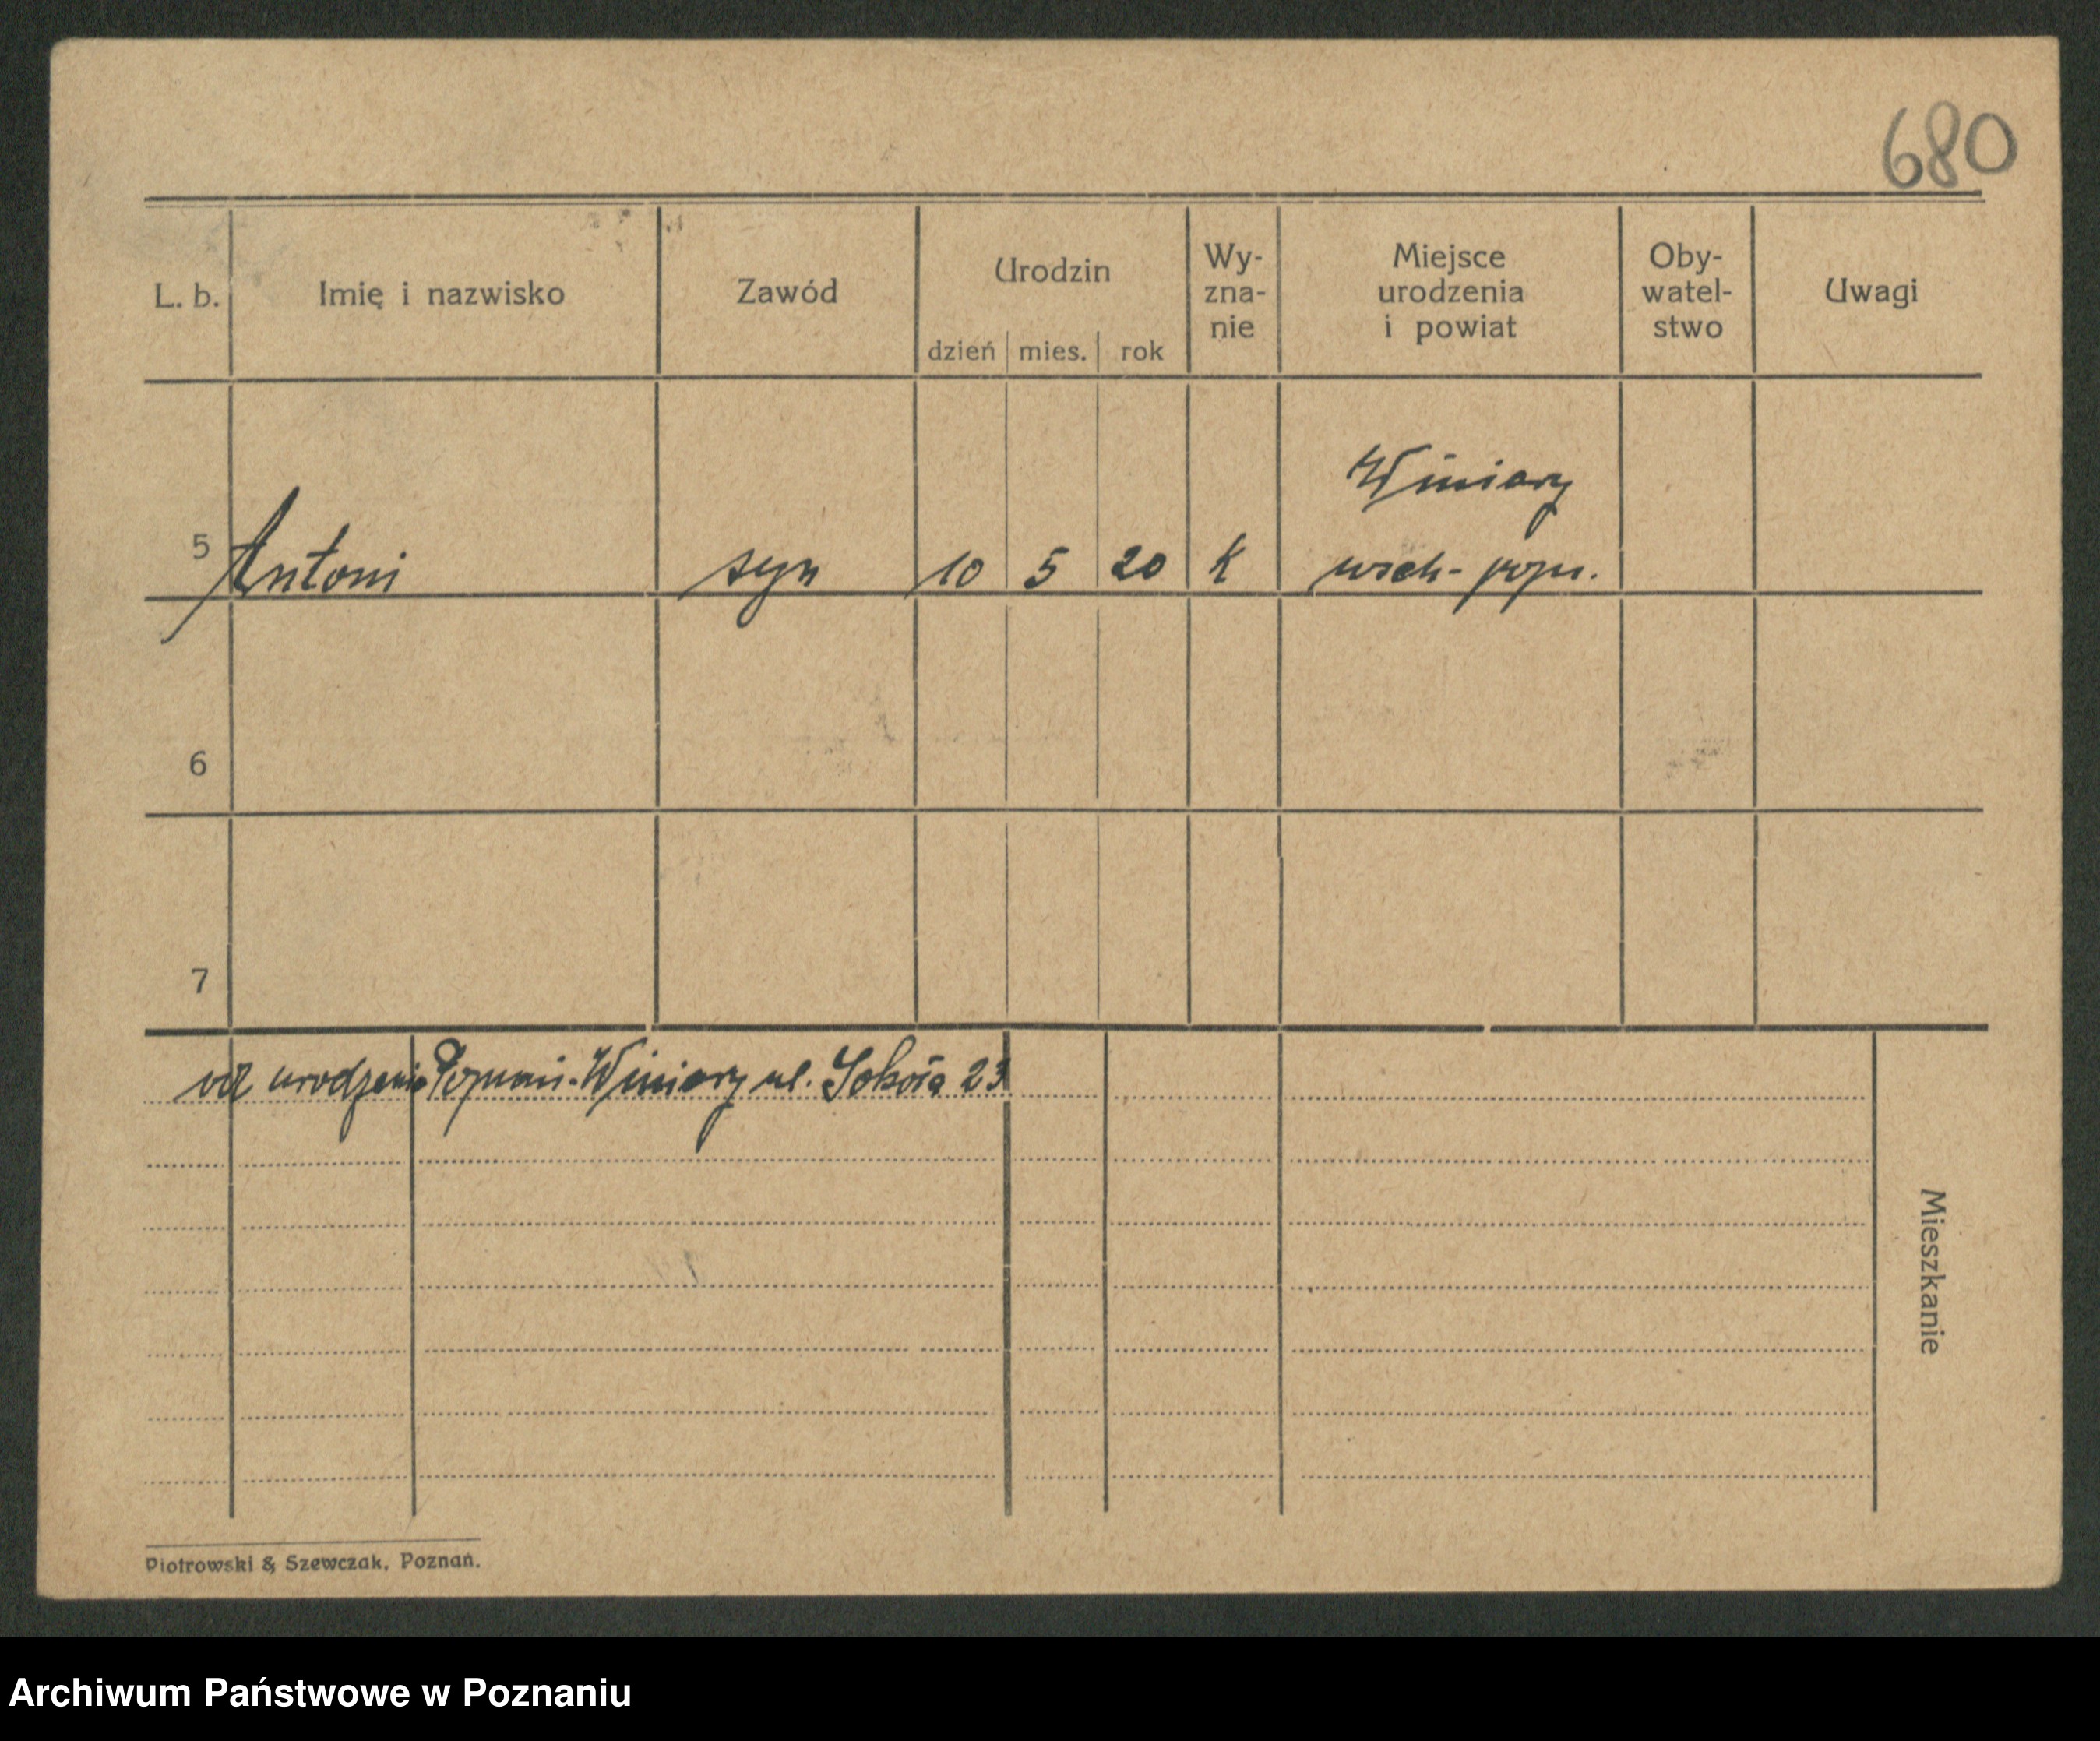 680
L. b. Imię i nazwisko Zawód Urodzin dzień mies. rok Wy-zna-nie Miejsce urodzenia i powiat Oby-watel-stwo Uwagi
Winiary
5 Antoni syn 10 5 20 K wsch- pozn.
6
7
od urodzenia Poznań-Winiary ul. Sokoła 23
Mieszkanie
Piotrowski & Szewczak, Poznań.
Archiwum Państwowe w Poznaniu